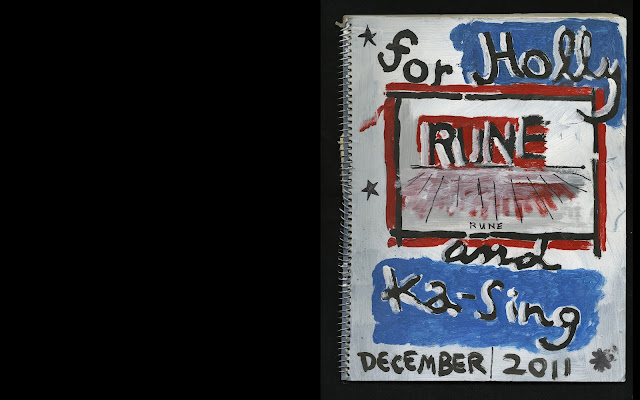 for Holly
RUNE
RUNE
and
Ka-Sing
DECEMBER | 2011